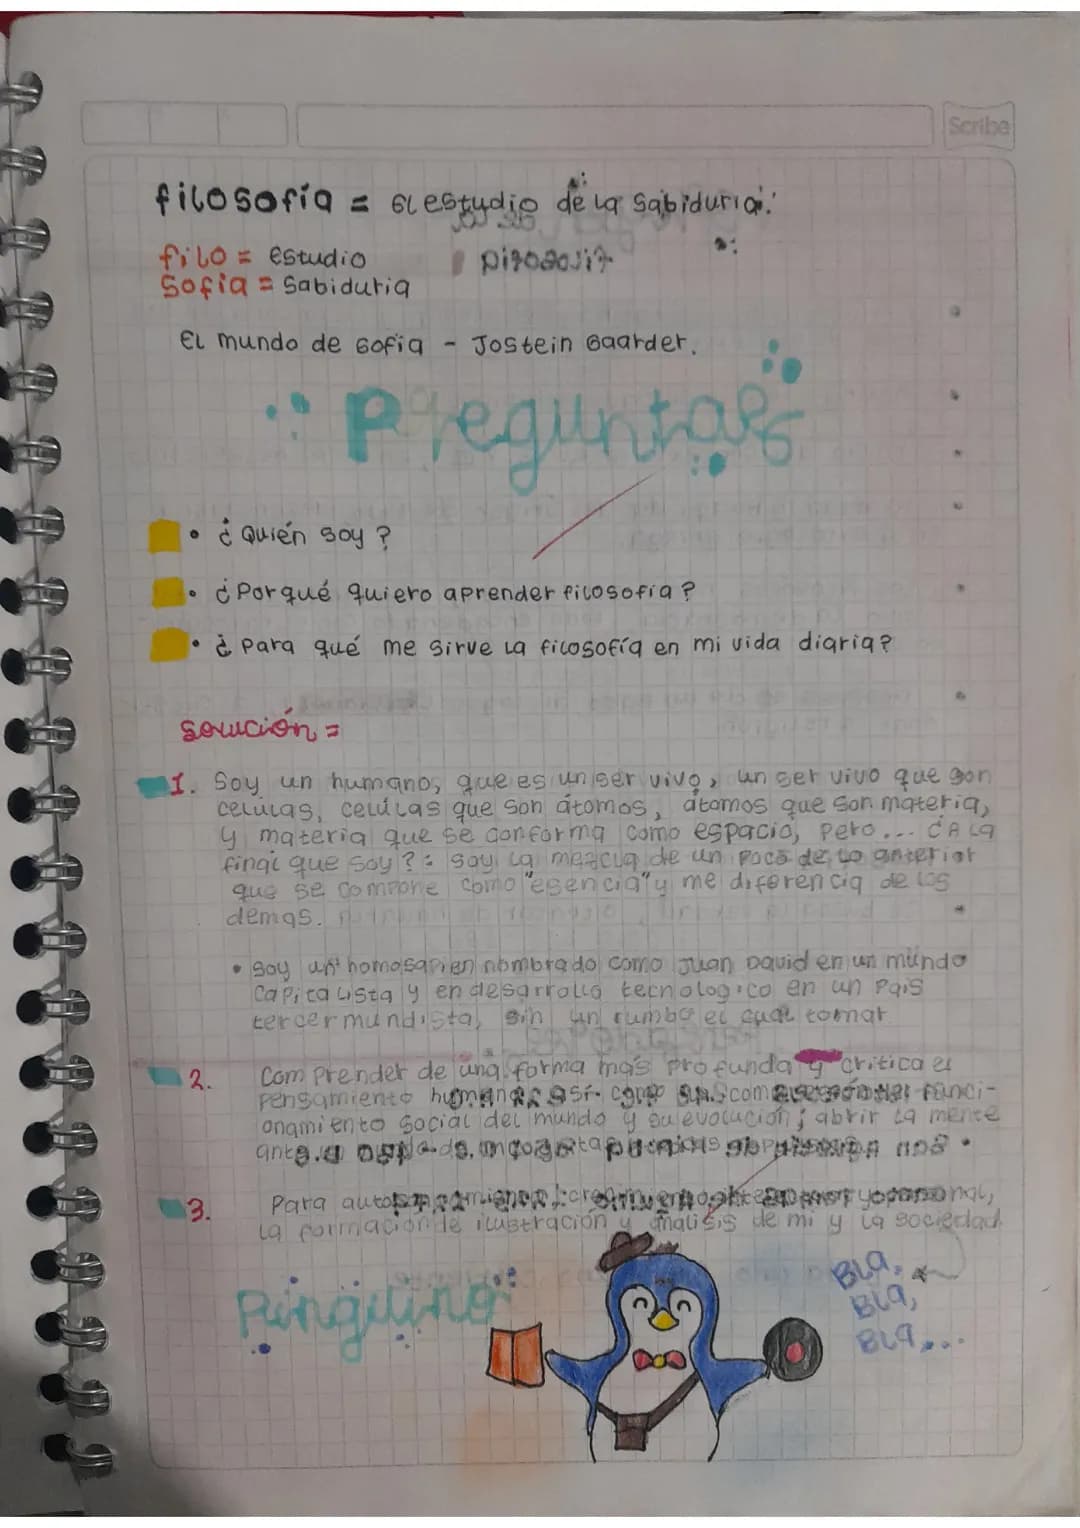 Scribe
filosofía = El estudio de la Sabiduria.
filo = estudio
Sofia = Sabiduria
El mundo de Sofia - Jostein Gaarder.
Preguntas
• ¿Quién soy?
• ¿Porqué quiero aprender filosofía?
• ¿Para qué me sirve la filosofía en mi vida diaria?
solución =
1. Soy un humano, que es un ser vivo, un ser vivo que son
celulas, celúlas que son átomos, átomos que son materia,
y materia que se conforma como espacio, pero... ¿A la
final que soy?: soy la mezcla de un poco de lo anterior
que se compone como "esencia" y me diferencia de los
demas.
• Soy un homosapien nombrado como Juan David en un mundo
capitalista y en desarrollo tecnologico en un pais
tercermundista, sin un rumbo el cual tomar
2. Comprender de una forma más profunda y critica el
pensamiento así como funci-
onamiento social del mundo y su evolución; abrir la mente
3. Para
la formación de ilustración y análisis de mi y la sociedad
Pingüino
Bla,
Bla,
Bla...